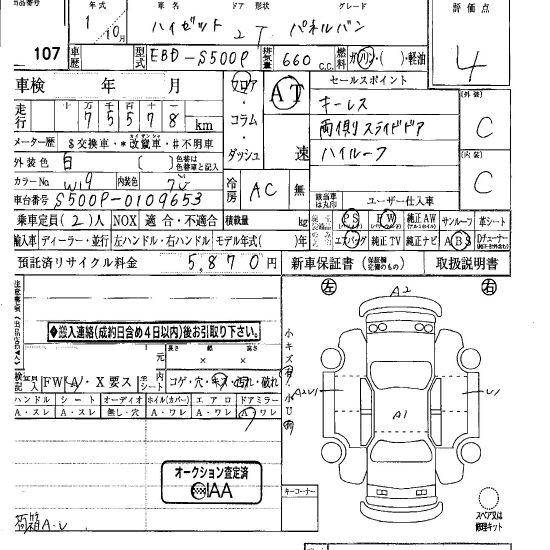 出品番号 年式 車名 ドア 形状 グレード 評価点
1年 10月 ハイゼット 2 T パネルバン 4
107 車歴 型式 EBD-S500P 排気量 660 c.c. 燃料 ガソリン・( )・軽油
車検 年 月 フロア・コラム・ダッシュ AT 速 セールスポイント
走行 十 万 千 百 十 一
7 5 5 7 8 km キーレス (外装) C
メーター歴 $交換車・*改竄車・#不明車 両側スライドドア
外装色 白 ( ) 色替は色替車と記入 ハイルーフ (内装) C
カラーNo. W19 内装色 グレ 冷房 AC 無 該当車は丸印 ユーザー仕入車
車台番号 S500P-0109653
乗車定員(2)人 NOX 適合・不適合 積載量 kg PS PW 純正AW サンルーフ 革シート
輸入車 ディーラー・並行 左ハンドル・右ハンドル モデル年式( )年 エアバッグ 純正TV 純正ナビ ABS Dチューナー
預託済リサイクル料金 5,870円 新車保証書 (保証継続交換のもの) 取扱説明書
左 A2 右
◆搬入連絡(成約日含め4日以内)後お引取り下さい。
元 長さ 幅 高さ cm
円 × ×
小キズ有・小U有
検査員記入 FW(A)・X要ス 内シート コゲ・穴・キズ・汚れ・破れ
A2U1 A1 U1
ハンドル シート オーディオ ホイル(カバー) エアロ ドアミラー
A・スレ A・スレ 無し・穴 A・ワレ A・ワレ A・ワレ
オークション査定済
IAA
キーコーナー
スペア又は修理キット
荷箱A・U